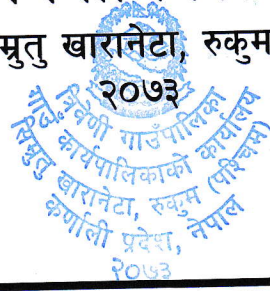 म्रुतु खारानेटा, रुकुम
२०७३
त्रिवेणी गाउँपालिका
गाउँ कार्यपालिकाको कार्यालय
सिम्रुतु खारानेटा, रुकुम (पश्चिम)
कर्णाली प्रदेश, नेपाल
२०७३